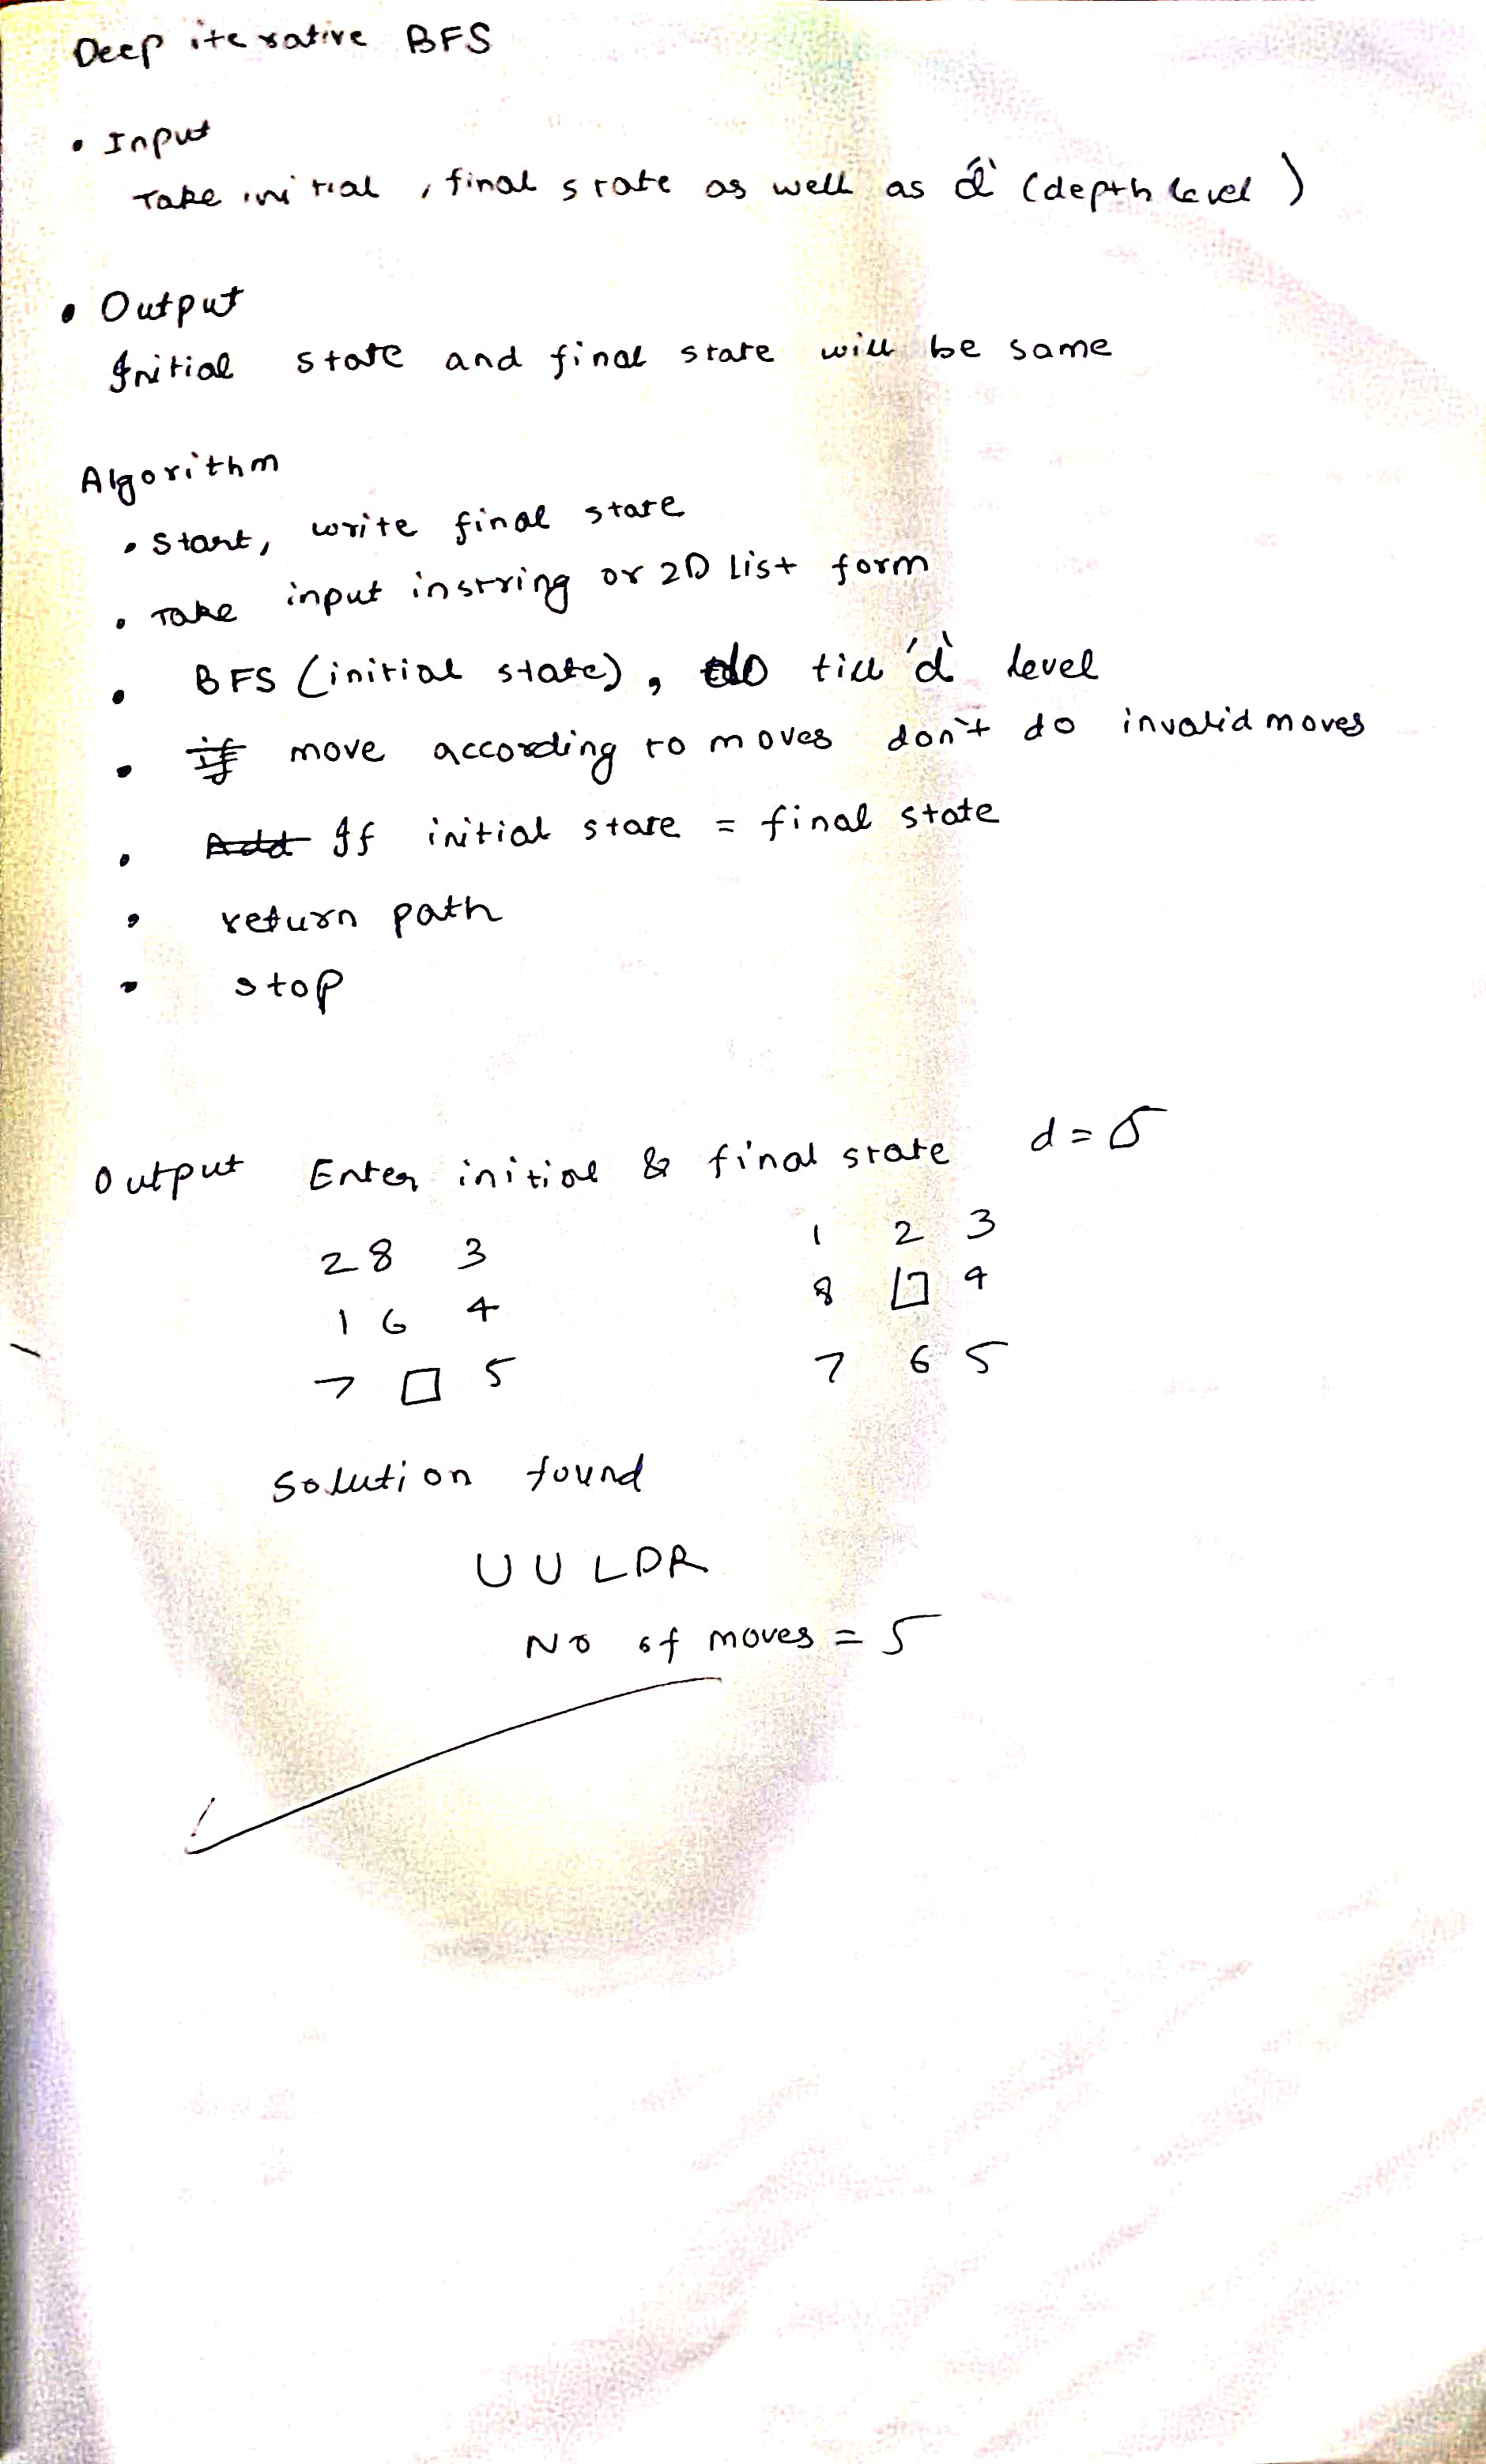 Deep iterative BFS
• Input
Take initial, final state as well as 'd' (depth level)
• Output
Initial state and final state will be same
Algorithm
• Start, write final state
• Take input instring or 2D List form
• BFS (initial state), do till 'd' level
• if move according to moves don't do invalid moves
• Add If initial state = final state
• return path
• stop
Output Enter initial & final state d = 5
2 8 3 1 2 3
1 6 4 8 □ 4
7 □ 5 7 6 5
Solution found
U U L D R
No of moves = 5